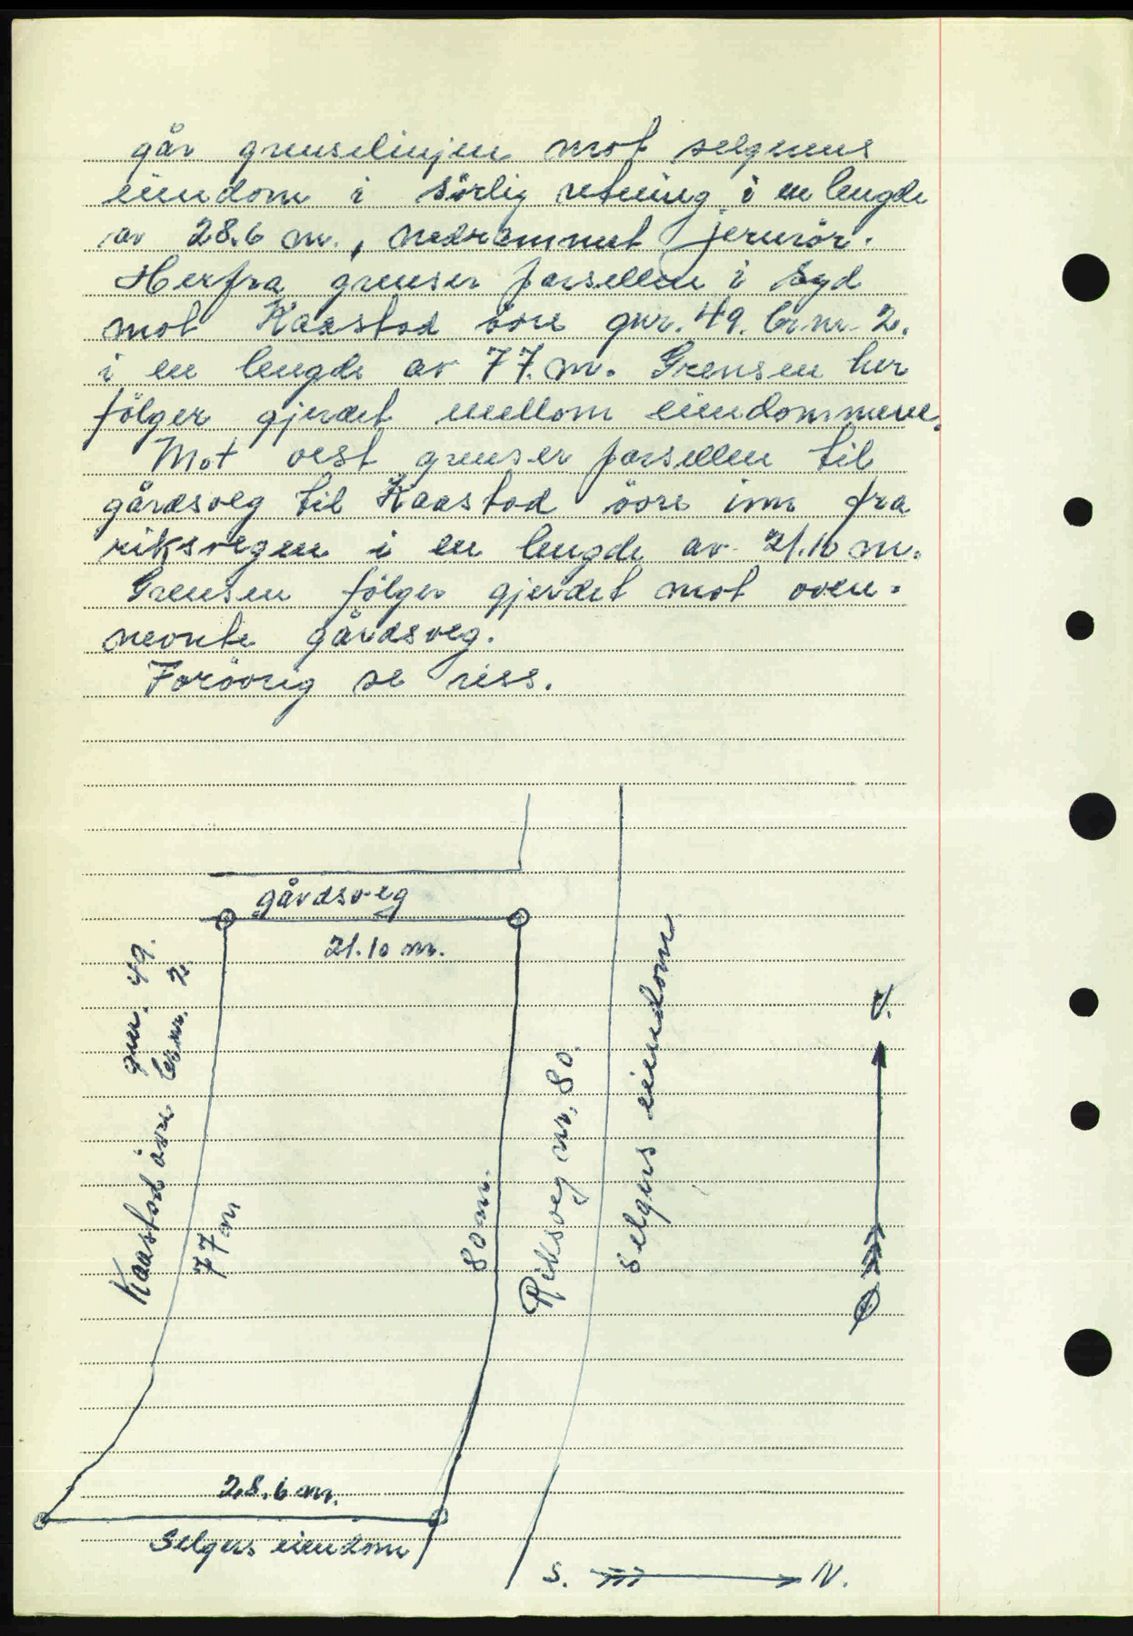 går grenselinjen mot selgerens
eiendom i sörlig retning i en lengde
av 28.6 m., nedrammet jernrör.
Herfra grenser parsellen i syd
mot Kaastad övre gnr. 49. br.nr. 2.
i en lengde av 77. m. Grensen her
fölger gjerdet mellom eiendommene.
Mot vest grenser parsellen til
gårdsveg til Kaastad övre inn fra
riksvegen i en lengde av 21.10 m.
Grensen fölger gjerdet mot oven-
nevnte gårdsveg.
Forövrig se riss.
gårdsveg
21.10 m.
gnr. 49.
br.nr. 2.
Kaastad övre
77 m
80 m.
Riksveg nr. 80.
Selgers eiendom
V.
Ø
28.6 m.
Selgers eiendom
S. N.